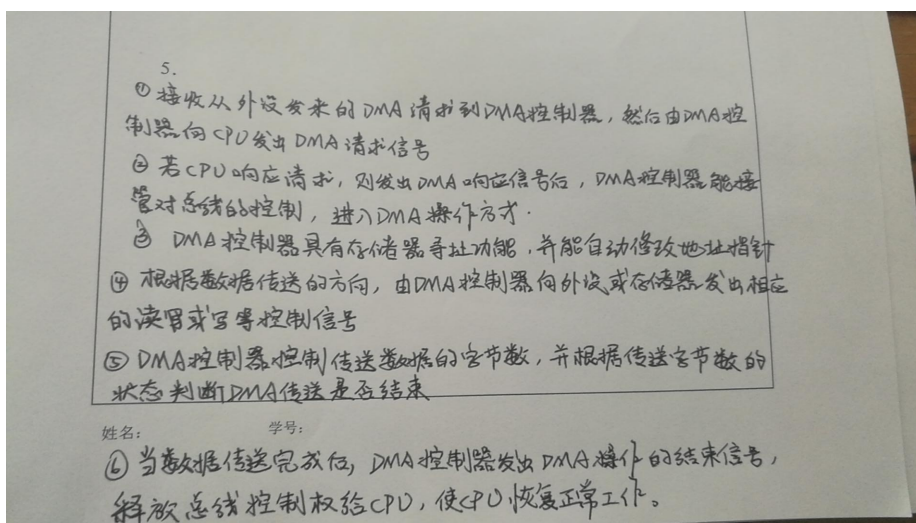 5.
①接收从外设发来的DMA请求到DMA控制器,然后由DMA控
制器向CPU发出DMA请求信号
②若CPU响应请求,则发出DMA响应信号后,DMA控制器能接
管对总线的控制,进入DMA操作方式.
③ DMA控制器具有存储器寻址功能,并能自动修改地址指针
④根据数据传送的方向,由DMA控制器向外设或存储器发出相应
的读或写等控制信号
⑤DMA控制器控制传送数据的字节数,并根据传送字节数的
状态判断DMA传送是否结束
姓名: 学号:
⑥当数据传送完成后,DMA控制器发出DMA操作的结束信号,
释放总线控制权给CPU,使CPU恢复正常工作。